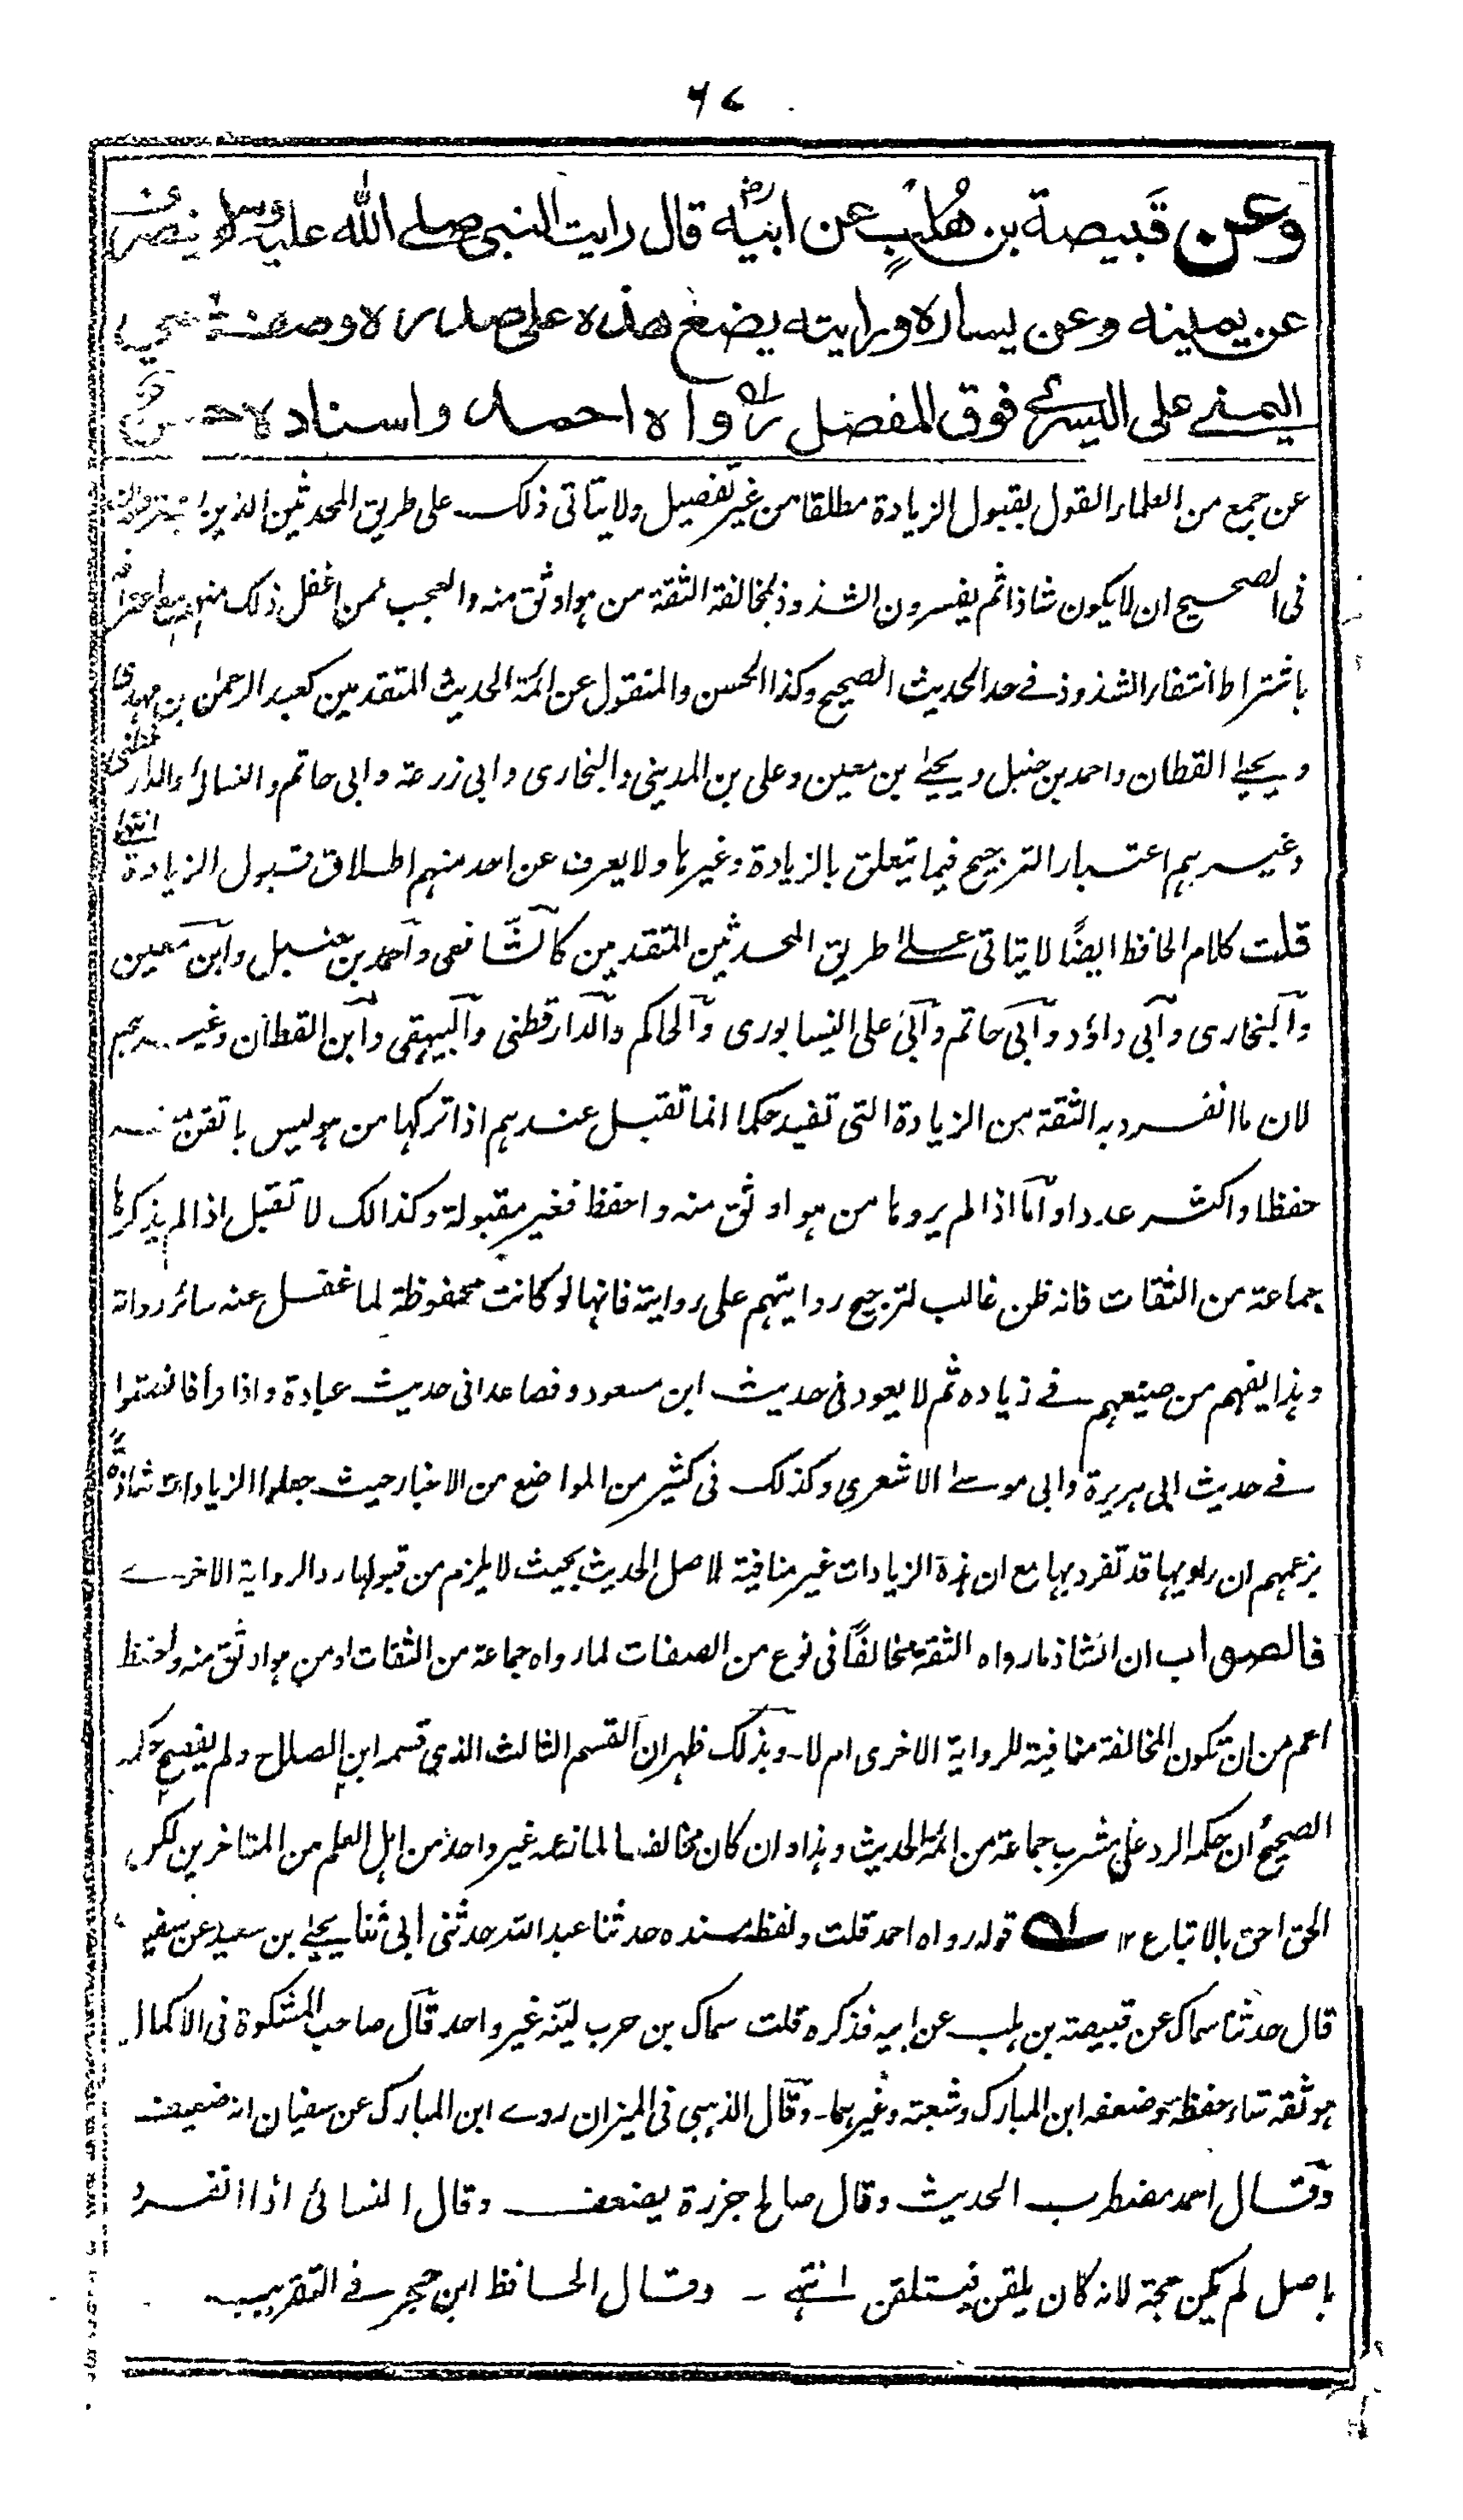 ٦٧
وعن قَبيصة بن هُلبٍ عن ابيه رض قال رايت النبي صلے الله عليه وسلم ينصرف
عن يمينه وعن يساره ورايته يضع هذه على صدره وصف يحيى
اليمنے على اليسرے فوق المفصل رواه احمد واسناده حسن
عن جمع من العلماء القول بقبول الزيادة مطلقا من غير تفصيل ولا يتاتى ذلك على طريق المحدثين الذين
فى الصحيح ان لا يكون شاذا ثم يفسرون الشذوذ بمخالفة الثقة من هو اوثق منه والعجب ممن اغفل ذلك منهم مع اعترافه
باشتراط انتفاء الشذوذ فے حد الحديث الصحيح وكذا الحسن والمنقول عن ائمة الحديث المتقدمين كعبد الرحمٰن بن مهدى
ويحيےٰ القطان واحمد بن حنبل ويحيےٰ بن معين وعلى بن المدينى والبخارى وابى زرعة وابى حاتم والنسائى والدارقطنى
وغيرهم اعتبار الترجيح فيما يتعلق بالزيادة وغيرها ولا يعرف عن احد منهم اطلاق قبول الزيادة انتهےٰ
قلت كلام الحافظ ايضًا لا يتاتى علےٰ طريق المحدثين المتقدمين كالشافعى واحمد بن حنبل وابن معين
والبخارى وابى داؤد وابى حاتم وابى على النيسابورى والحاكم والدارقطنى والبيهقى وابن القطان وغيرهم
لان ما انفرد به الثقة من الزيادة التى تفيد حكما انما تقبل عندهم اذا تركها من هو ليس باتقن منه
حفظا واكثر عددا واما اذا لم يروها من هو اوثق منه واحفظ فغير مقبولة وكذالك لا تقبل اذا لم يذكرها
جماعة من الثقات فانه ظن غالب لترجيح روايتهم على روايته فانها لو كانت محفوظة لما غفل عنه سائر رواته
وهذا يفهم من صنيعهم فے زياده ثم لا يعود فى حديث ابن مسعود وفصاعدا فى حديث عبادة واذا قرأ فانصتوا
فے حديث ابى هريرة وابى موسےٰ الاشعرى وكذلك فى كثير من المواضع من الاخبار حيث جعلوا الزيادات شاذةً
بزعمهم ان راويها قد تفرد بها مع ان هذه الزيادات غير منافية لاصل الحديث بحيث لا يلزم من قبولها رد الرواية الاخرےٰ
فالصواب ان الشاذ ما رواه الثقة مخالفًا فى نوع من الصفات لما رواه جماعة من الثقات او من هو اوثق منه واحفظ
اعم من ان تكون المخالفة منافية للرواية الاخرى ام لا - وبذلك ظهر ان القسم الثالث الذى قسمه ابن الصلاح ولم يفصح حكمه
الصحيح ان حكمه الرد على مشرب جماعة من ائمة الحديث وهذا وان كان مخالفا لما زعمه غير واحد من اهل العلم من المتاخرين لكن
الحق احق بالاتباع ١٢ قوله رواه احمد قلت ولفظ مسنده حدثنا عبد الله حدثنى ابى ثنا يحيےٰ بن سعيد عن سفين
قال حدثنا سماك عن قبيصة بن هلب عن ابيه فذكره قلت سماك بن حرب ليّنه غير واحد قال صاحب المشكوة فى الاكمال
هو ثقة ساء حفظه وضعفه ابن المبارك وشعبة وغيرهما - وقال الذهبى فى الميزان روے ابن المبارك عن سفيان انه ضعيف
وقال احمد مضطرب الحديث وقال صالح جزرة يضعف وقال النسائى اذا انفرد
باصل لم يكن حجة لانه كان يلقن فيتلقن انتهےٰ - وقال الحافظ ابن حجر فے التقريب